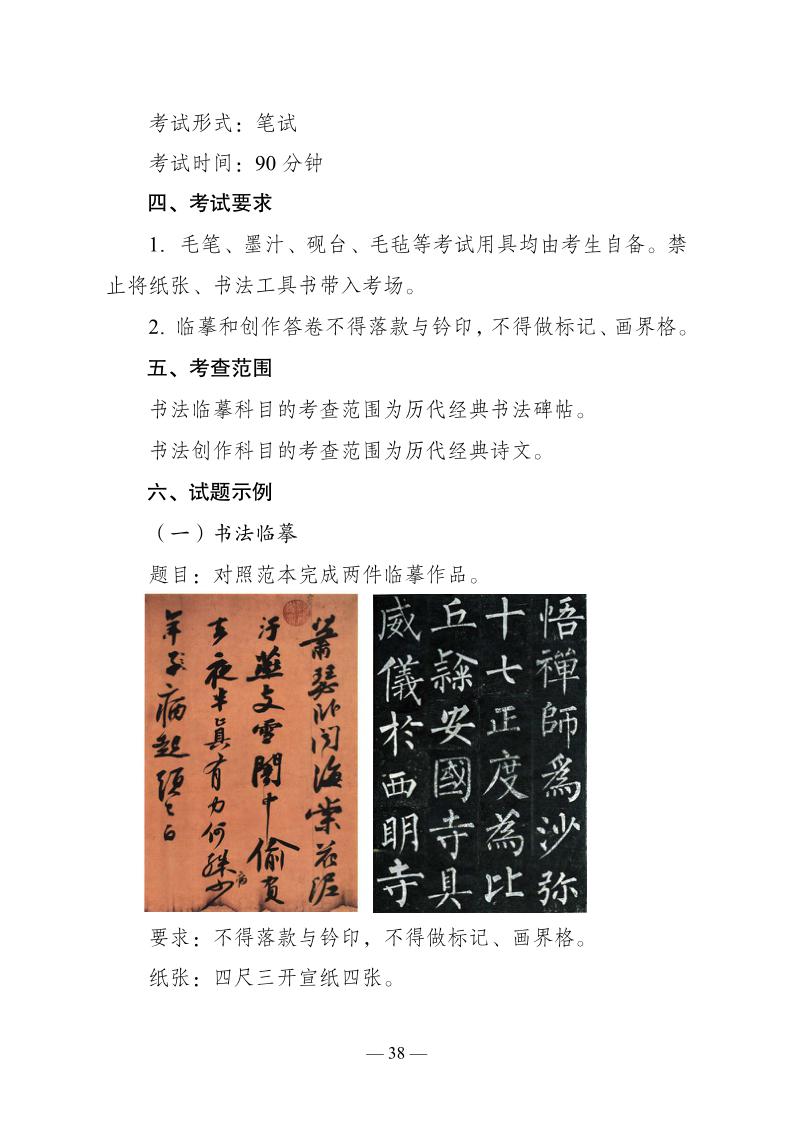 考试形式：笔试
考试时间：90 分钟
四、考试要求
1. 毛笔、墨汁、砚台、毛毡等考试用具均由考生自备。禁
止将纸张、书法工具书带入考场。
2. 临摹和创作答卷不得落款与钤印，不得做标记、画界格。
五、考查范围
书法临摹科目的考查范围为历代经典书法碑帖。
书法创作科目的考查范围为历代经典诗文。
六、试题示例
（一）书法临摹
题目：对照范本完成两件临摹作品。
蕭瑟卧聞海棠花泥
汙燕支雪闇中偷負
去夜半真有力何殊少
年子病起頭已白
悟禪師爲沙弥
十七正度爲比
丘隸安國寺具
威儀於西明寺
要求：不得落款与钤印，不得做标记、画界格。
纸张：四尺三开宣纸四张。
— 38 —